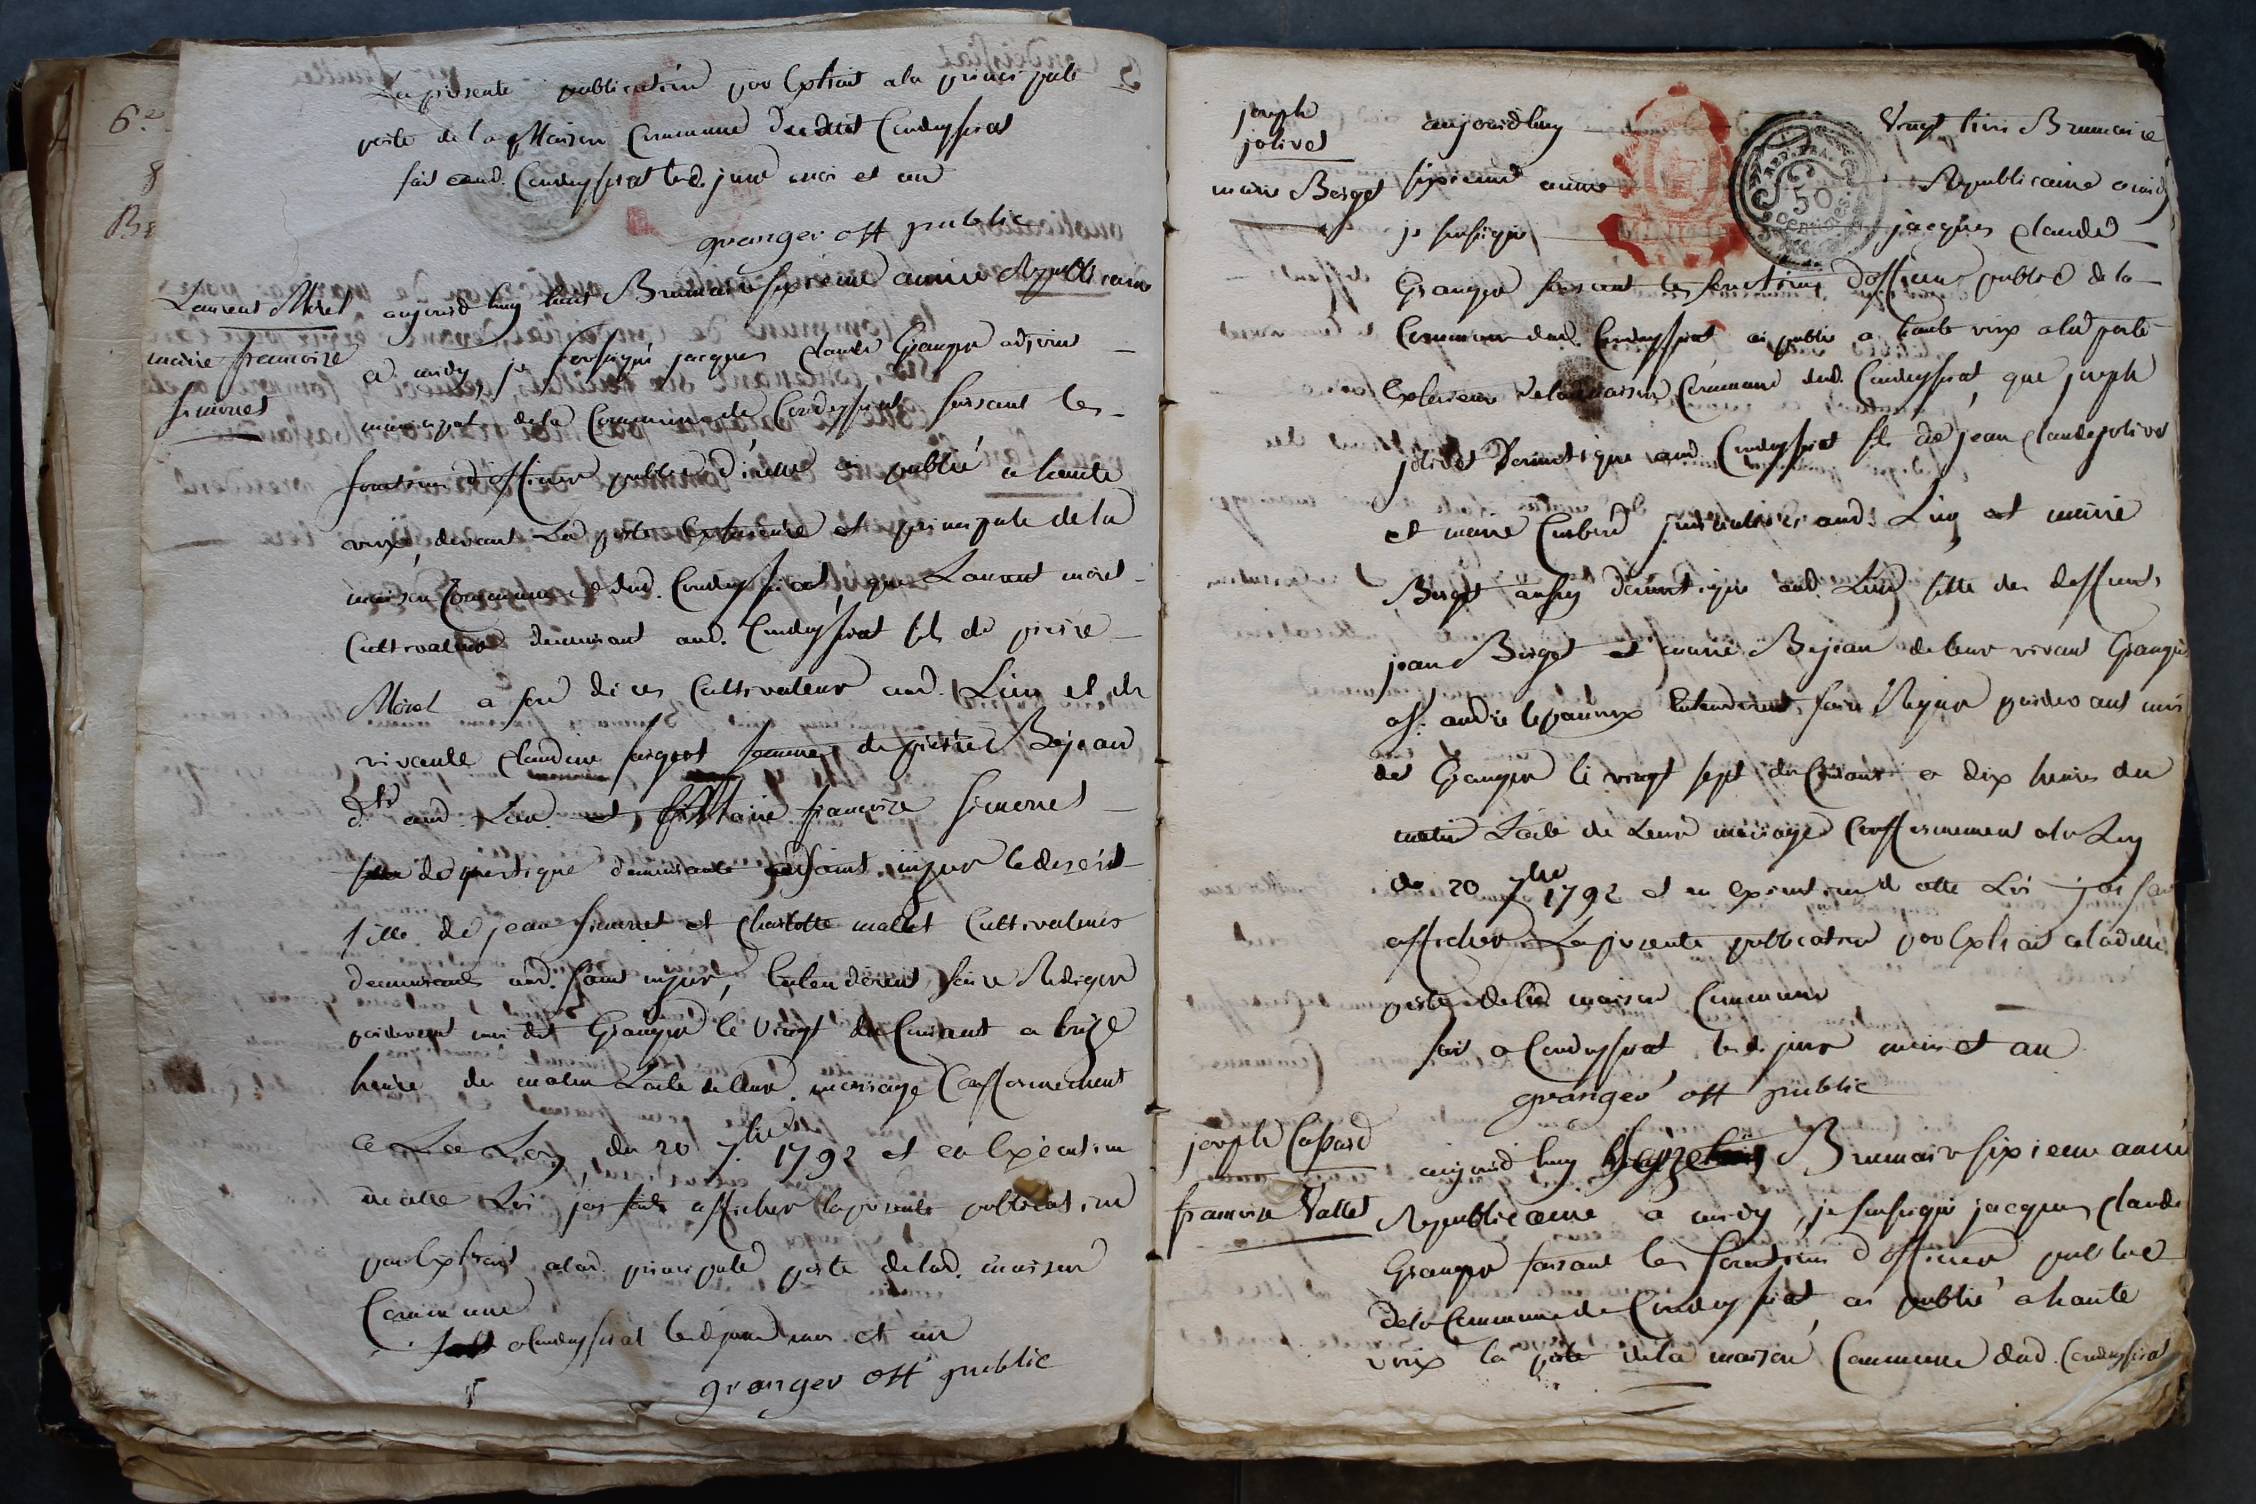 La presente publication par Extrait a la principale
porte de la Maison Commune dudit Condeyssiat
fait aud. Condeyssiat led. jour mois et an
granger off public
Laurent Moret
marie francoise
simonet
aujourd huy huit Brumaire sixieme année Republicaine
a midy, je soussigné jacques claude Granger adjoint
municipal de la Commune de Condeyssiat faisant les
fonctions d'officier public d'icelle ai publié a haute
voix, devant La porte Exterieure et principale de la
maison Commune dud. Condeyssiat que Laurent moret
Cultivateur demeurant aud. Condeyssiat fils de pierre
Moret a son Cultivateur aud. Lieu et de
vivante claudine femme de pierre Bejean
aud. Lieu et Marie françoise Simonet
domestique demeurante a saint le desert
fille de jean Simonet et Charlotte mallet Cultivateurs
demeurants aud. saint Entenderent faire Rediger
pardevant moi dit Granger le vingt du Courant a onze
heure du matin Lacte de Leur mariage Confformement
a La Loy du 20 7.bre 1792 et en Exécution
de cette Loi j'ai fait afficher la presente publication
par Extrait a lad. principale porte de lad. maison
Commune
fait a Condeyssiat led. jour mois et an
granger off public
joseph
jolivet
marie Berget
aujourdhuy vingt trois Brumaire
sixieme année Republicaine a midy
je soussigné jacques claude
REP. FRA.
50
centimes
Granger faisant les fonctions d'officier public de la
Commune dud. Condeyssiat ai publié a haute voix a la porte
Exterieure de la maison Commune dud. Condeyssiat, que joseph
jolivet Domestique aud. Condeyssiat fils de jean claude jolivet
et marie aud. Lieu et marie
Berget aussy domestique aud. Lieu fille des deffunts
jean Berget et marie Bejean de leur vivant Granger
a St. andré le panoux Entenderent faire Rediger pardevant moi
dit Granger le vingt sept du Courant a dix heures du
matin Lacte de Leur mariage Confformement a la Loy
du 20 7bre 1792 et en Execution de cette Loi j'ai fait
afficher La presente publication par Extrait a ladite
porte de lad. maison Commune
fait a Condeyssiat led. jour mois et an
granger off public
joseph
francoise Vallet
aujourd huy Brumaire sixieme année
Republicaine a midy, je soussigné jacques claude
Granger faisant les fonctions d'officier public
de la Commune de Condeyssiat ai publié a haute
voix la porte de la maison Commune dud. Condeyssiat